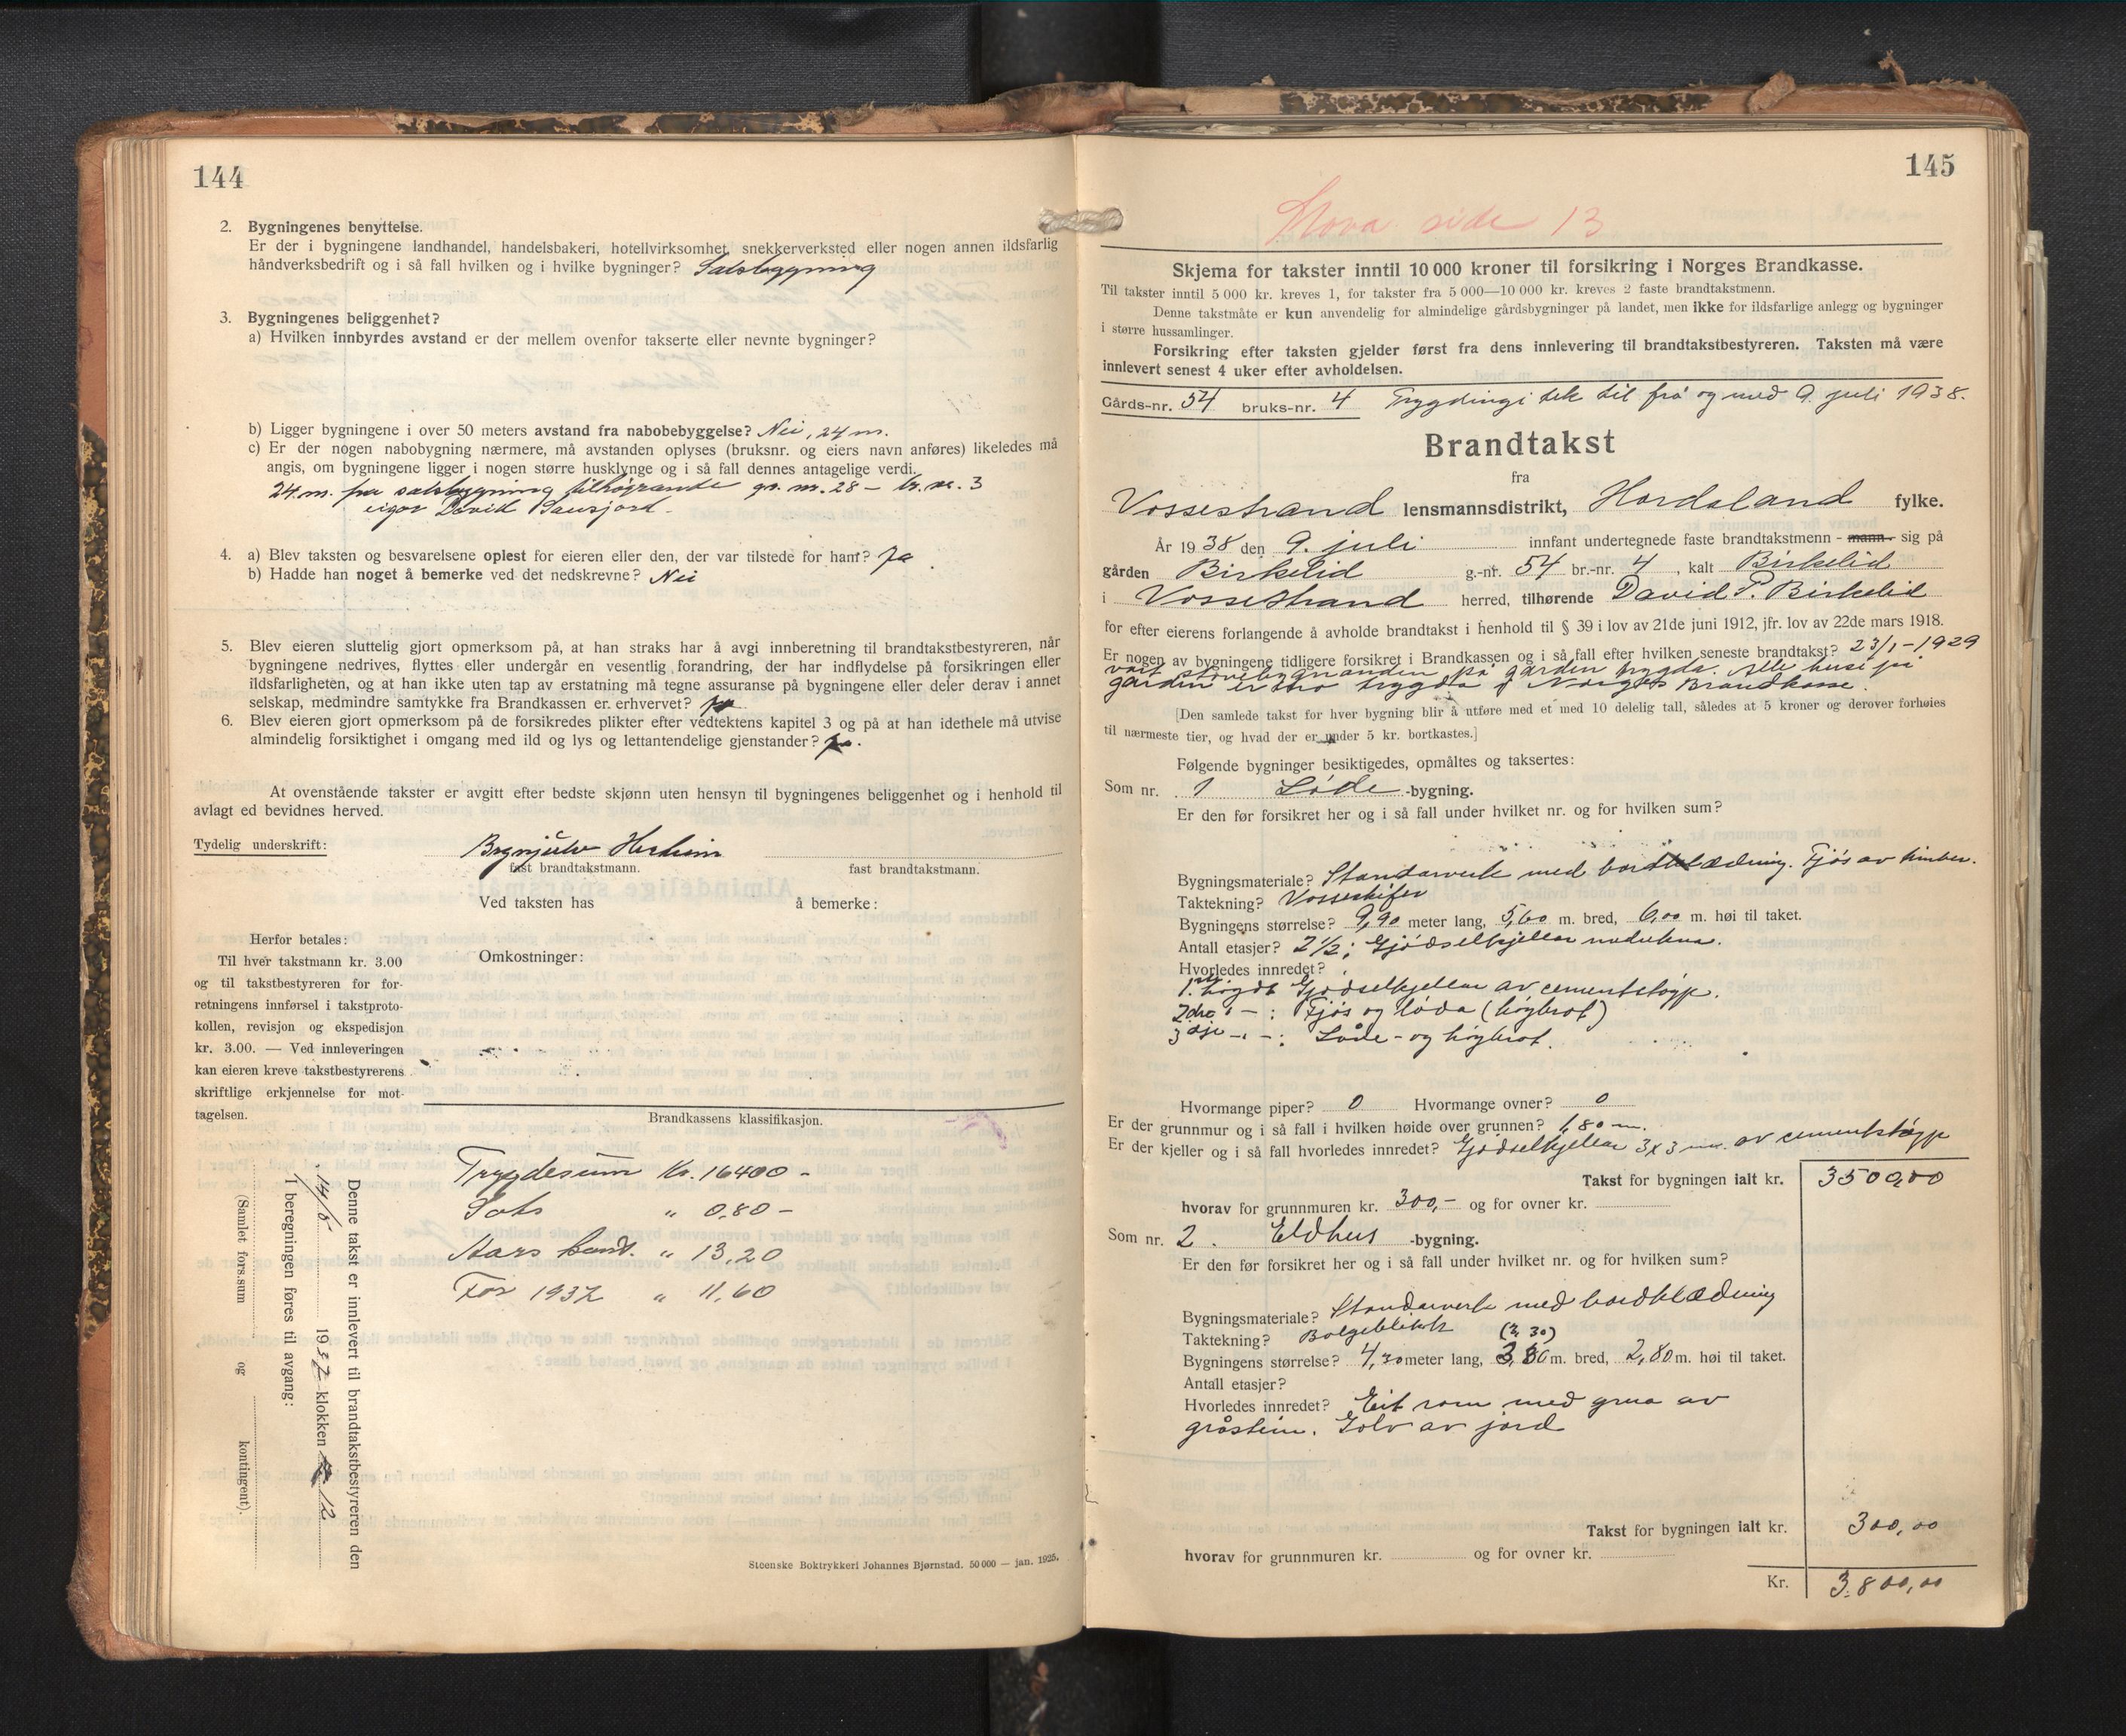 144
2. Bygningenes benyttelse.
Er der i bygningene landhandel, handelsbakeri, hotellvirksomhet, snekkerverksted eller nogen annen ildsfarlig
håndverksbedrift og i så fall hvilken og i hvilke bygninger?
3. Bygningenes beliggenhet?
a) Hvilken innbyrdes avstand er der mellem ovenfor takserte eller nevnte bygninger?
b) Ligger bygningene i over 50 meters avstand fra nabobebyggelse? Nei, 24 m.
c) Er der nogen nabobygning nærmere, må avstanden oplyses (bruksnr. og eiers navn anføres) likeledes må
angis, om bygningene ligger i nogen større husklynge og i så fall dennes antagelige verdi.
24 m. fra salsbygning tilhøyrande gr. nr. 28 – br. nr. 3
eigar David
4. a) Blev taksten og besvarelsene oplest for eieren eller den, der var tilstede for ham? Ja
b) Hadde han noget å bemerke ved det nedskrevne? Nei
5. Blev eieren sluttelig gjort opmerksom på, at han straks har å avgi innberetning til brandtakstbestyreren, når
bygningene nedrives, flyttes eller undergår en vesentlig forandring, der har indflydelse på forsikringen eller
ildsfarligheten, og at han ikke uten tap av erstatning må tegne assuranse på bygningene eller deler derav i annet
selskap, medmindre samtykke fra Brandkassen er erhvervet? Ja
6. Blev eieren gjort opmerksom på de forsikredes plikter efter vedtektens kapitel 3 og på at han idethele må utvise
almindelig forsiktighet i omgang med ild og lys og lettantendelige gjenstander? Ja.
At ovenstående takster er avgitt efter bedste skjønn uten hensyn til bygningenes beliggenhet og i henhold til
avlagt ed bevidnes herved.
Tydelig underskrift:
Brynjulv
fast brandtakstmann. fast brandtakstmann.
Ved taksten has å bemerke:
Herfor betales:
Til hver takstmann kr. 3.00
og til takstbestyreren for for-
retningens innførsel i takstproto-
kollen, revisjon og ekspedisjon
kr. 3.00. — Ved innleveringen
kan eieren kreve takstbestyrerens
skriftlige erkjennelse for mot-
tagelsen.
Omkostninger:
Brandkassens klassifikasjon.
Trygdesum Kr. 16400 –
Sats " 0,80 –
Aars " 13,20
For 1937 " 11,60
Denne takst er innlevert til brandtakstbestyreren den
14/5 1937 klokken 12
I beregningen føres til avgang:
(Samlet fors.sum og kontingent).
Steenske Boktrykkeri Johannes Bjørnstad. 50 000 — jan. 1925.
145
Stova side 13
Skjema for takster inntil 10 000 kroner til forsikring i Norges Brandkasse.
Til takster inntil 5 000 kr. kreves 1, for takster fra 5 000—10 000 kr. kreves 2 faste brandtakstmenn.
Denne takstmåte er kun anvendelig for almindelige gårdsbygninger på landet, men ikke for ildsfarlige anlegg og bygninger
i større hussamlinger.
Forsikring efter taksten gjelder først fra dens innlevering til brandtakstbestyreren. Taksten må være
innlevert senest 4 uker efter avholdelsen.
Gårds-nr. 54 bruks-nr. 4 Trygdingi tek til frå og med 9. juli 1938.
Brandtakst
fra
Vossestrand lensmannsdistrikt, Hordaland fylke.
År 1938 den 9. juli innfant undertegnede faste brandtakstmenn - mann - sig på
gården Birkelid g.-nr. 54 br.-nr. 4, kalt Birkelid
i Vossestrand herred, tilhørende David P. Birkelid
for efter eierens forlangende å avholde brandtakst i henhold til § 39 i lov av 21de juni 1912, jfr. lov av 22de mars 1918.
Er nogen av bygningene tidligere forsikret i Brandkassen og i så fall efter hvilken seneste brandtakst? 23/1-1929
vart på garden trygda. Alle husi på
garden er no trygda i Norges Brandkasse.
[Den samlede takst for hver bygning blir å utføre med et med 10 delelig tall, således at 5 kroner og derover forhøies
til nærmeste tier, og hvad der er under 5 kr. bortkastes.]
Følgende bygninger besiktigedes, opmåltes og taksertes:
Som nr. 1 Løde-bygning.
Er den før forsikret her og i så fall under hvilket nr. og for hvilken sum?
Bygningsmateriale? Standarverk med bordklædning. Fjøs av timber.
Taktekning? Vosseskifer
Bygningens størrelse? 9,90 meter lang, 5,60 m. bred, 6,00 m. høi til taket.
Antall etasjer? 2 1/2; Gjødselkjellar
Hvorledes innredet?
1ste høgda Gjødselkjellar av cementstøyp.
2dre " – : Fjøs og løda (höybrot)
3dje – " – : Løde- og höybrot.
Hvormange piper? 0 Hvormange ovner? 0
Er der grunnmur og i så fall i hvilken høide over grunnen? 1,80 m.
Er der kjeller og i så fall hvorledes innredet? Gjødselkjellar 3x3 m. av cementstøyp
Takst for bygningen ialt kr. 3500,00
hvorav for grunnmuren kr. 300,– og for ovner kr.
Som nr. 2. Eldhus -bygning.
Er den før forsikret her og i så fall under hvilket nr. og for hvilken sum?
Bygningsmateriale? Standarverk med bordklædning
Taktekning? Bølgeblikk (3,30)
Bygningens størrelse? 4,30 meter lang, 3,80 m. bred, 2,80 m. høi til taket.
Antall etasjer?
Hvorledes innredet? Eit rom med grua av
gråstein. Golv av jord
Takst for bygningen ialt kr. 300,00
hvorav for grunnmuren kr. og for ovner kr.
Kr. 3.800,00